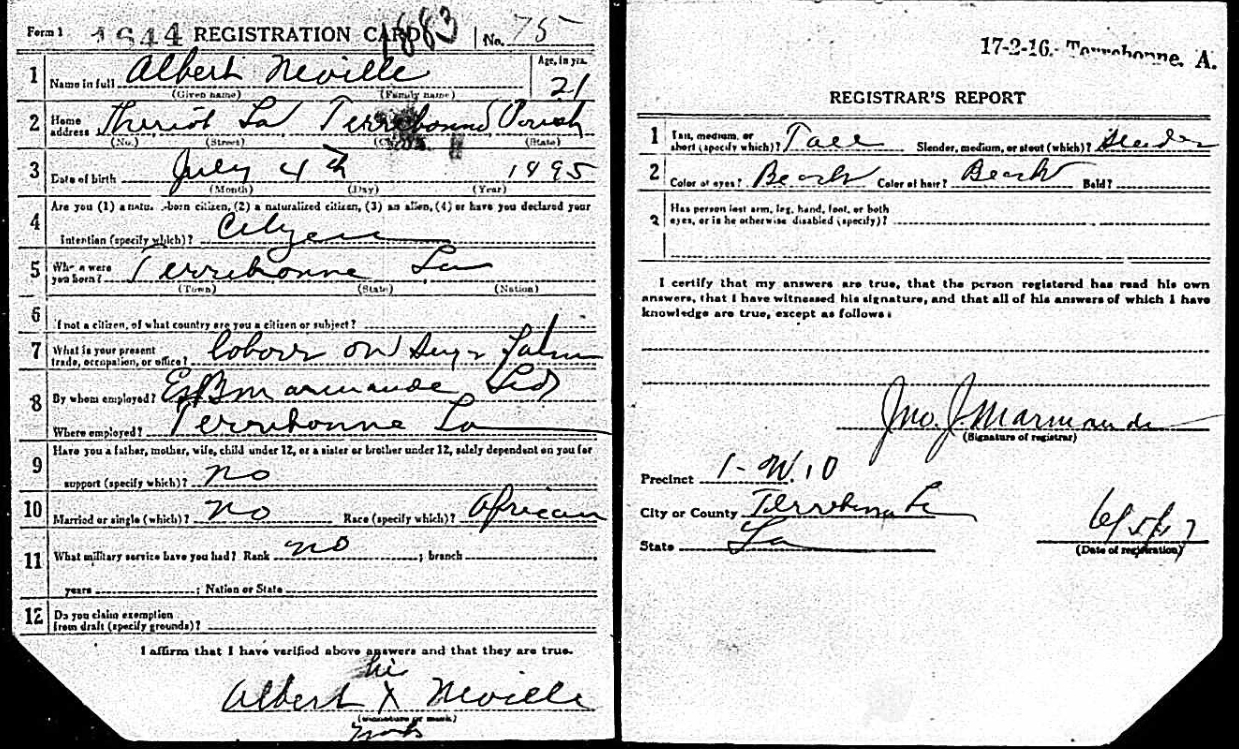 Form 1 1644 REGISTRATION CARD 1883 No. 75
1 Name in full Albert Neville Age, in yrs. 21
(Given name) (Family name)
2 Home address Theriot La Terrebonne Parish
(No.) (Street) (City) (State)
3 Date of birth July 4th 1895
(Month) (Day) (Year)
4 Are you (1) a natural-born citizen, (2) a naturalized citizen, (3) an alien, (4) or have you declared your
intention (specify which)? Citizen
5 Where were you born? Terrebonne La
(Town) (State) (Nation)
6 If not a citizen, of what country are you a citizen or subject?
7 What is your present trade, occupation, or office? Labour on
8 By whom employed? Marmande
Where employed? Terrebonne La
9 Have you a father, mother, wife, child under 12, or a sister or brother under 12, solely dependent on you for
support (specify which)? no
10 Married or single (which)? no Race (specify which)? African
11 What military service have you had? Rank no ; branch
years ; Nation or State
12 Do you claim exemption from draft (specify grounds)?
I affirm that I have verified above answers and that they are true.
his
Albert X Neville
(Signature or mark)
mark
17-2-16. Terrebonne, A.
REGISTRAR'S REPORT
1 Tall, medium, or short (specify which)? Tall Slender, medium, or stout (which)? Slender
2 Color of eyes? Color of hair? Bald?
3 Has person lost arm, leg, hand, foot, or both
eyes, or is he otherwise disabled (specify)?
I certify that my answers are true, that the person registered has read his own
answers, that I have witnessed his signature, and that all of his answers of which I have
knowledge are true, except as follows:
Jno. J. Marmande
(Signature of registrar)
Precinct 1- W. 10
City or County Terrebonne
State La
6/5/17
(Date of registration)